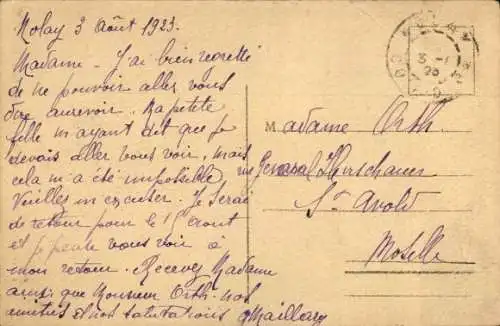 Molay 3 Août 1923.
Madame - J'ai bien regretté
de ne pouvoir aller vous
dire aurevoir. La petite
fille m'ayant dit que je
devais aller vous voir, mais
cela m'a été impossible
Veuillez m'excuser. Je serai
de retour pour le 15 Aout
et je pense vous voir à
mon retour. Recevez Madame
ainsi que Monsieur Orth. nos
amitiés et nos salutations Maillary
Madame Orth.
rue General Hirschauer
St Avold
Moselle